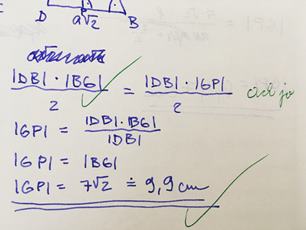 D a√2 B
|DB| · |BG| / 2 = |DB| · |GP| / 2
|GP| = |DB| · |BG| / |DB|
|GP| = |BG|
|GP| = 7√2 ≐ 9,9 cm